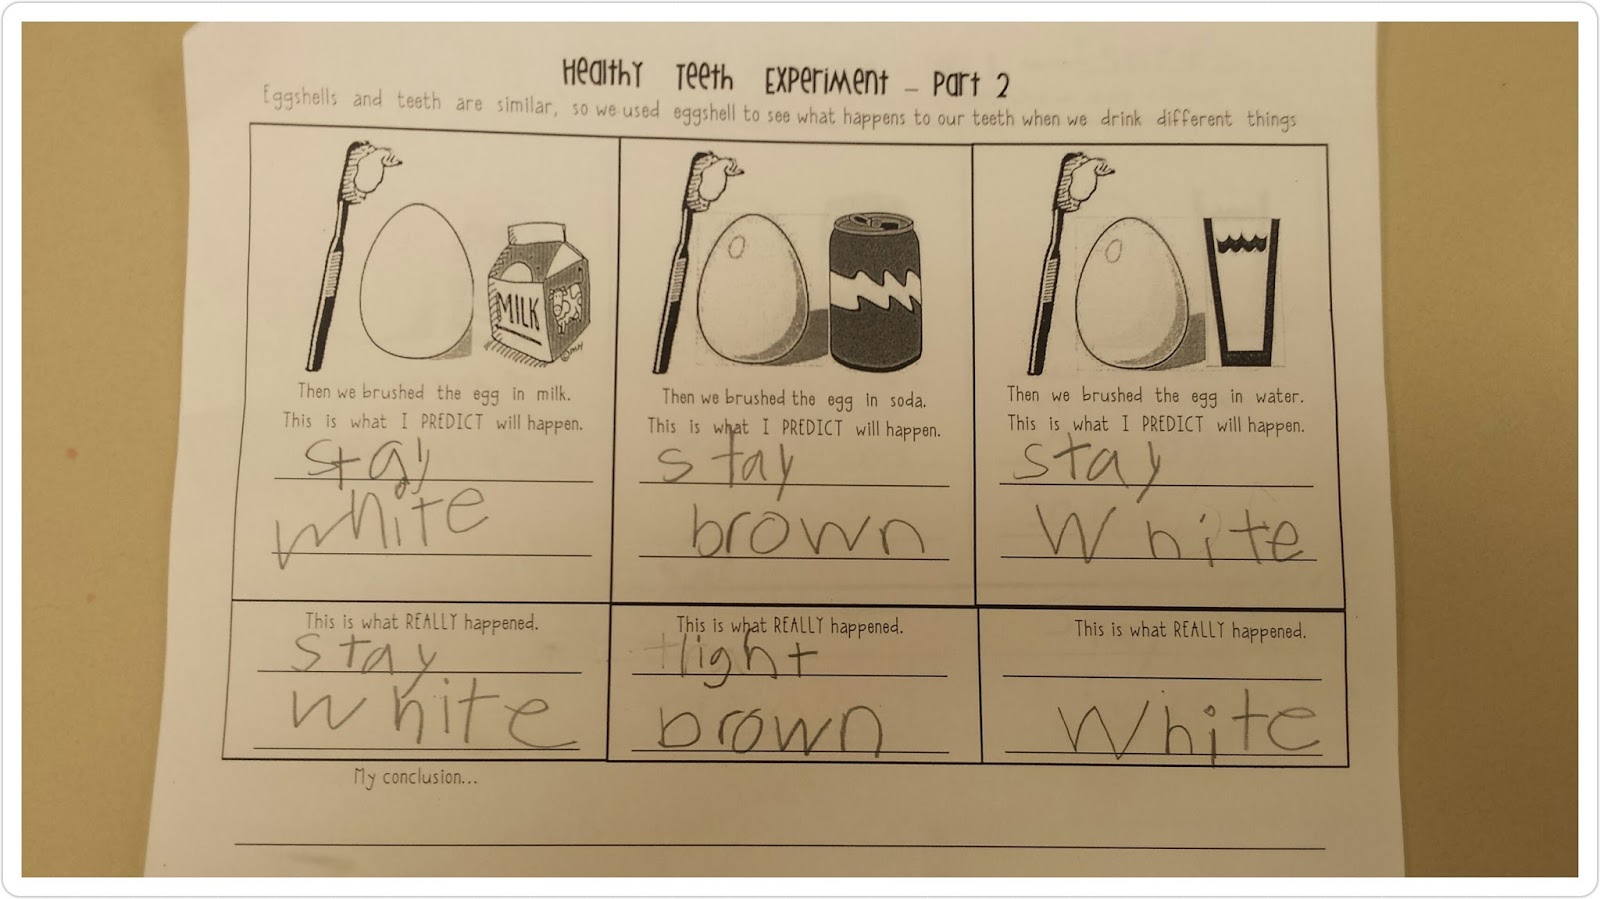 Healthy Teeth Experiment – Part 2
Eggshells and teeth are similar, so we used eggshell to see what happens to our teeth when we drink different things
MILK
Then we brushed the egg in milk.
This is what I PREDICT will happen.
stay
white
Then we brushed the egg in soda.
This is what I PREDICT will happen.
stay
brown
Then we brushed the egg in water.
This is what I PREDICT will happen.
stay
white
This is what REALLY happened.
stay
white
This is what REALLY happened.
light
brown
This is what REALLY happened.
white
My conclusion...